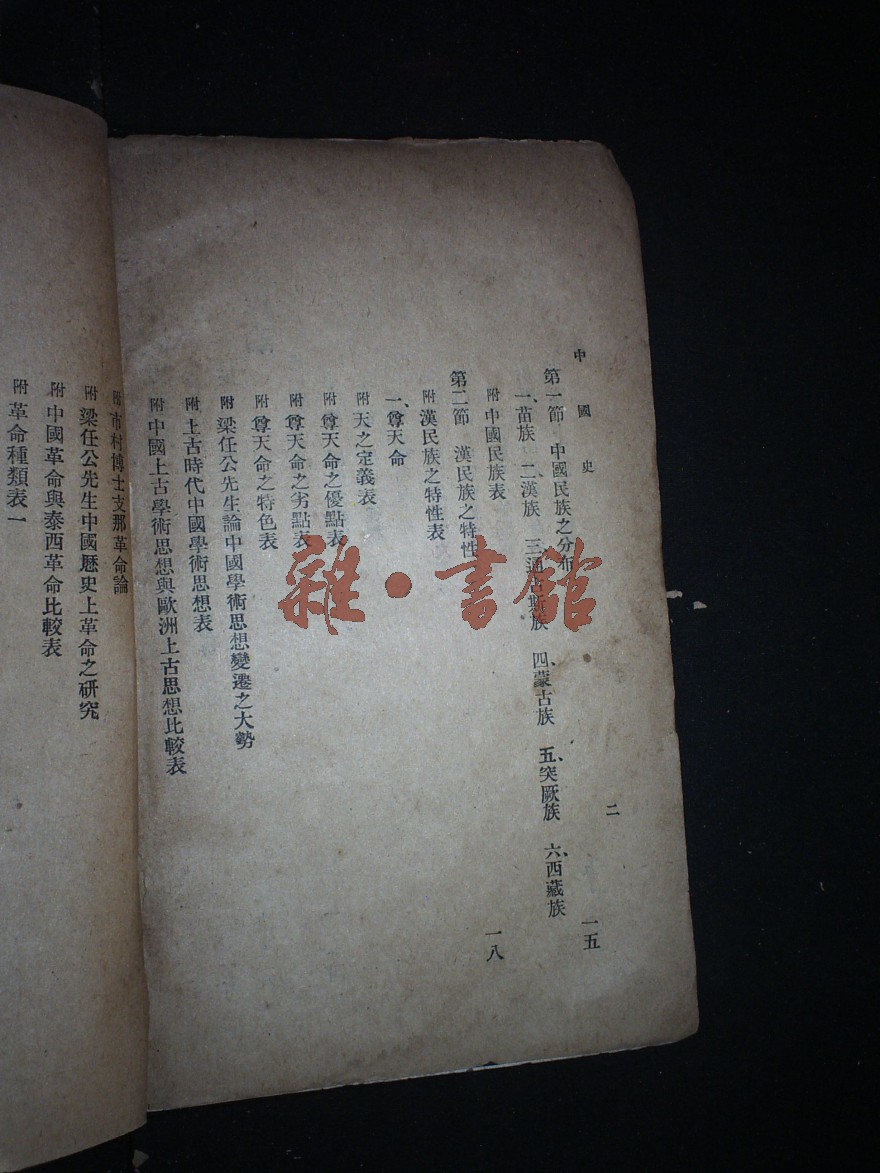 中國史
二
第一節　中國民族之分布　一五
一、苗族　二、漢族　三、通古斯族　四、蒙古族　五、突厥族　六、西藏族
附　中國民族表
第二節　漢民族之特性　一八
附　漢民族之特性表
一、尊天命
附　天之定義表
附　尊天命之優點表
附　尊天命之劣點表
附　尊天命之特色表
附　梁任公先生論中國學術思想變遷之大勢
附　上古時代中國學術思想表
附　中國上古學術思想與歐洲上古思想比較表
附　市村博士支那革命論
附　梁任公先生中國歷史上革命之研究
附　中國革命與泰西革命比較表
附　革命種類表一
雜·書館